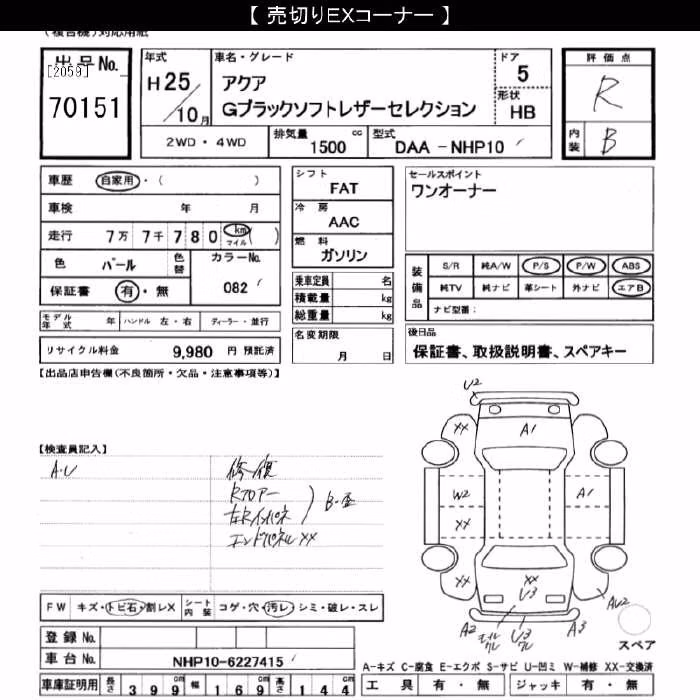 【 売切りEXコーナー 】
(複合機)対応用紙
出品No.
[2059]
70151
年式
H25/10月
車名・グレード
アクア
Gブラックソフトレザーセレクション
ドア
5
形状
HB
評価点
R
内装
B
2WD・4WD
排気量
1500 cc
型式
DAA-NHP10
車歴 自家用・( )
車検 年 月
走行 7万 7千 780 km マイル ( )
色 パール 色替 カラーNo.
082
保証書 有・無
モデル年式 年 ハンドル 左・右 ディーラー・並行
リサイクル料金 9,980 円 預託済
シフト
FAT
冷房
AAC
燃料
ガソリン
乗車定員 名
積載量 kg
総重量 kg
名変期限
月 日
セールスポイント
ワンオーナー
装備品
S/R 純A/W P/S P/W ABS
純TV 純ナビ 革シート 外ナビ エアB
ナビ型番：
後日品
保証書、取扱説明書、スペアキー
【出品店申告欄(不良箇所・欠品・注意事項等)】
【検査員記入】
A・U
修復
Rフロアー
左Rインパネ
B・歪
エンドパネルXX
FW キズ・トビ石・割レX シート内装 コゲ・穴・汚レ・シミ・破レ・スレ
登録No.
車台No. NHP10-6227415
車庫証明用 長さ 399cm 幅 169cm 高さ 144cm
U2
XX
A1
W2
A1
XX
XX
XX
U3
AU2
A2
U3
A3
スペア
A-キズ C-腐食 E-エクボ S-サビ U-凹ミ W-補修 XX-交換済
工具 有・無 ジャッキ 有・無